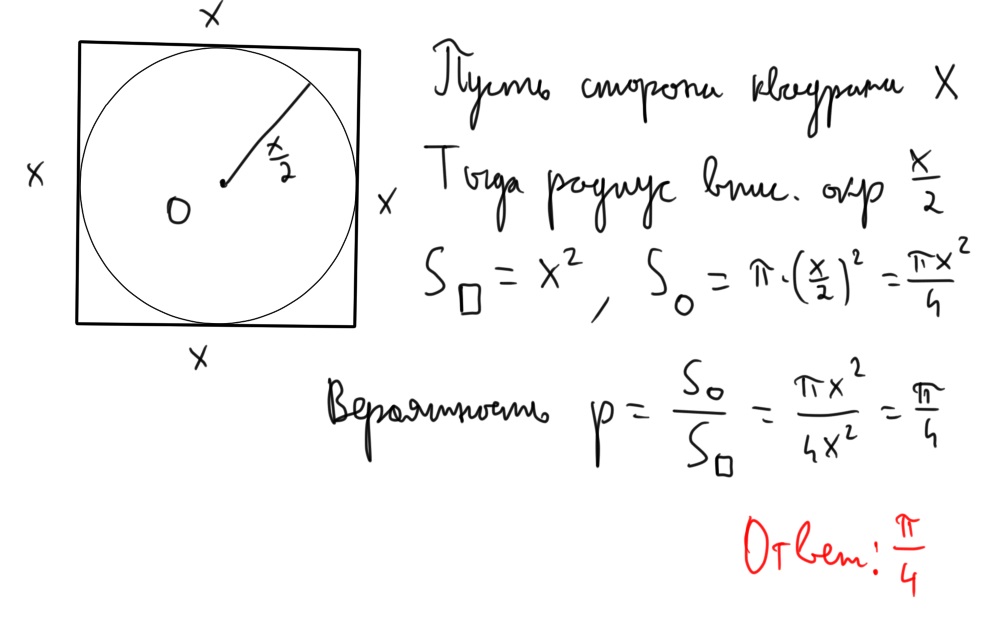 x
x
x
x
x/2
O
Пусть сторона квадрата x
Тогда радиус впис. окр x/2
S□ = x², S○ = π·(x/2)² = πx²/4
Вероятность p = S○/S□ = πx²/4x² = π/4
Ответ: π/4